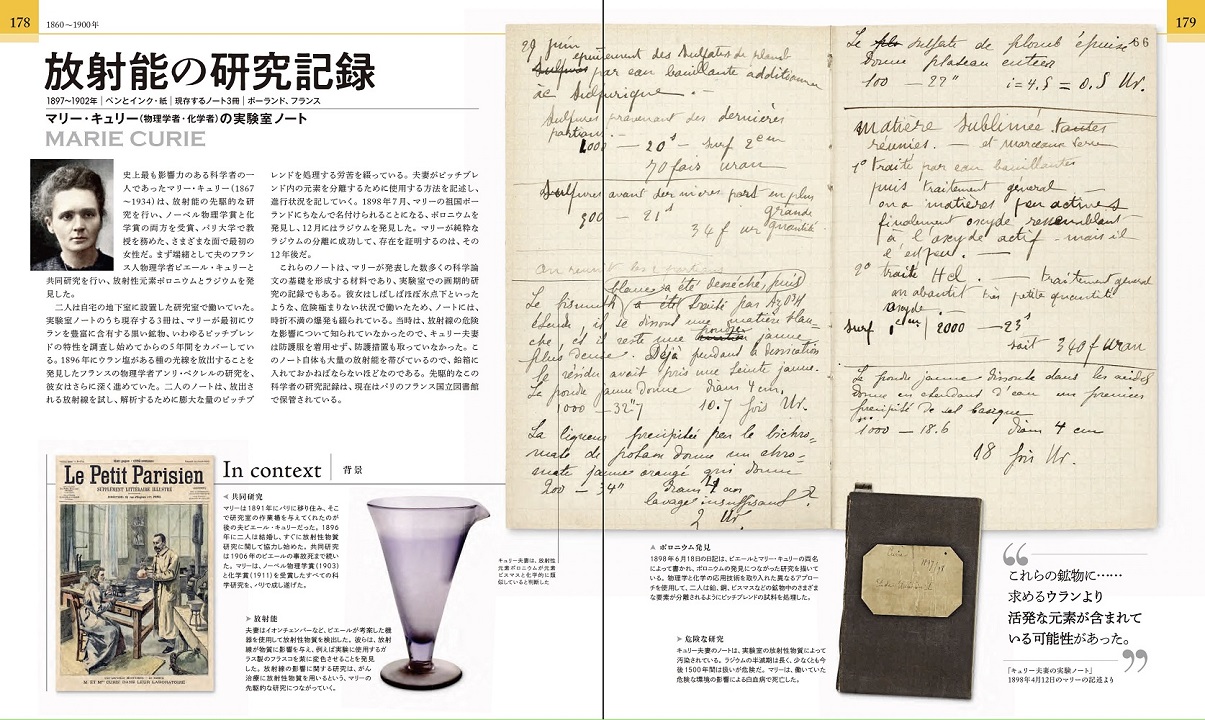 178
1860～1900年
放射能の研究記録
1897～1902年｜ペンとインク・紙｜現存するノート3冊｜ポーランド、フランス
マリー・キュリー（物理学者・化学者）の実験室ノート
MARIE CURIE
史上最も影響力のある科学者の一
人であったマリー・キュリー（1867
～1934）は、放射能の先駆的な研
究を行い、ノーベル物理学賞と化
学賞の両方を受賞、パリ大学で教
授を務めた、さまざまな面で最初の
女性だ。まず端緒として夫のフラン
ス人物理学者ピエール・キュリーと
共同研究を行い、放射性元素ポロニウムとラジウムを発
見した。
二人は自宅の地下室に設置した研究室で働いていた。
実験室ノートのうち現存する3冊は、マリーが最初にウ
ランを豊富に含有する黒い鉱物、いわゆるピッチブレン
ドの特性を調査し始めてからの5年間をカバーしてい
る。1896年にウラン塩がある種の光線を放出することを
発見したフランスの物理学者アンリ・ベクレルの研究を、
彼女はさらに深く進めていた。二人のノートは、放出さ
れる放射線を試し、解析するために膨大な量のピッチブ
レンドを処理する労苦を綴っている。夫妻がピッチブレ
ンド内の元素を分離するために使用する方法を記述し、
進行状況を記していく。1898年7月、マリーの祖国ポー
ランドにちなんで名付けられることになる、ポロニウムを
発見し、12月にはラジウムを発見した。マリーが純粋な
ラジウムの分離に成功して、存在を証明するのは、その
12年後だ。
これらのノートは、マリーが発表した数多くの科学論
文の基礎を形成する材料であり、実験室での画期的研
究の記録でもある。彼女はしばしばほぼ氷点下といった
ような、危険極まりない状況で働いたため、ノートには、
時折不満の爆発も綴られている。当時は、放射線の危険
な影響について知られていなかったので、キュリー夫妻
は防護服を着用せず、防護措置も取っていなかった。こ
のノート自体も大量の放射能を帯びているので、鉛箱に
入れておかねばならないほどなのである。先駆的なこの
科学者の研究記録は、現在はパリのフランス国立図書館
で保管されている。
Le Petit Parisien
SUPPLÉMENT LITTÉRAIRE ILLUSTRÉ
M. ET Mme CURIE DANS LEUR LABORATOIRE
In context
背景
◁ 共同研究
マリーは1891年にパリに移り住み、そこ
で研究室の作業場を与えてくれたのが
後の夫ピエール・キュリーだった。1896
年に二人は結婚し、すぐに放射性物質
研究に関して協力し始めた。共同研究
は1906年のピエールの事故死まで続い
た。マリーは、ノーベル物理学賞（1903）
と化学賞（1911）を受賞したすべての科
学研究を、パリで成し遂げた。
▷ 放射能
夫妻はイオンチェンバーなど、ピエールが考案した機
器を使用して放射性物質を検出した。彼らは、放射
線が物質に影響を与え、例えば実験に使用するガ
ラス製のフラスコを紫に変色させることを発見
した。放射線の影響に関する研究は、がん
治療に放射性物質を用いるという、マリーの
先駆的な研究につながっていく。
キュリー夫妻は、放射性
元素ポロニウムが元素
ビスマスと化学的に類
似していると判断した
179
29 juin
épuisement des Sulfates de plomb
par eau bouillante additionnée
Sulfures provenant des dernières
1000 — 20s — surf 2cm
70 fois uran
Sulfures avant dernières part en plus
grande
300 — 21s
34 f ur quantité
blanc
Le bismuth a été traité par
il se dissout une matière blan-
che, et il reste une poudre jaune
plus dense. Déjà pendant la dessication
le résidu avait pris une teinte jaune.
La poudre jaune donne diam 4 cm,
1000 — 32"7 10.7 fois Ur.
La liqueur précipitée par le bichro-
mate de potasse donne un chro-
mate jaune orangé qui donne
200 — 34" diam 4 cm
lavage insuffisant ?
2 Ur.
66
Le sulfate de plomb épuisé
donne plateau entier
100 — 22" i=4.5 = 0.5 Ur.
matière sublimée toutes
réunies. — et morceaux verre
1° traité par eau bouillante
puis traitement general
on a matières peu actives
finalement oxyde ressemblant
à l'oxyde actif — mais il
l'est peu. —
2° traité HCl — traitement général
on aboutit très petite quantité
oxyde
surf 1cm 2000 — 23s
soit 340 f uran
La poudre jaune dissoute dans les acides
donne en étendant d'eau un premier
précipité de sel basique
1000 — 18.6 diam 4 cm
18 fois Ur.
△ ポロニウム発見
1898年6月18日の日記は、ピエールとマリー・キュリーの両名
によって書かれ、ポロニウムの発見につながった研究を描いて
いる。物理学と化学の応用技術を取り入れた異なるアプロー
チを使用して、二人は鉛、銅、ビスマスなどの鉱物中のさまざま
な要素が分離されるようにピッチブレンドの試料を処理した。
▷ 危険な研究
キュリー夫妻のノートは、実験室の放射性物質によって
汚染されている。ラジウムの半減期は長く、少なくとも今
後1500年間は扱いが危険だ。マリーは、働いていた
危険な環境の影響による白血病で死亡した。
“
これらの鉱物に……
求めるウランより
活発な元素が含まれて
いる可能性があった。
”
『キュリー夫妻の実験ノート』
1898年4月12日のマリーの記述より